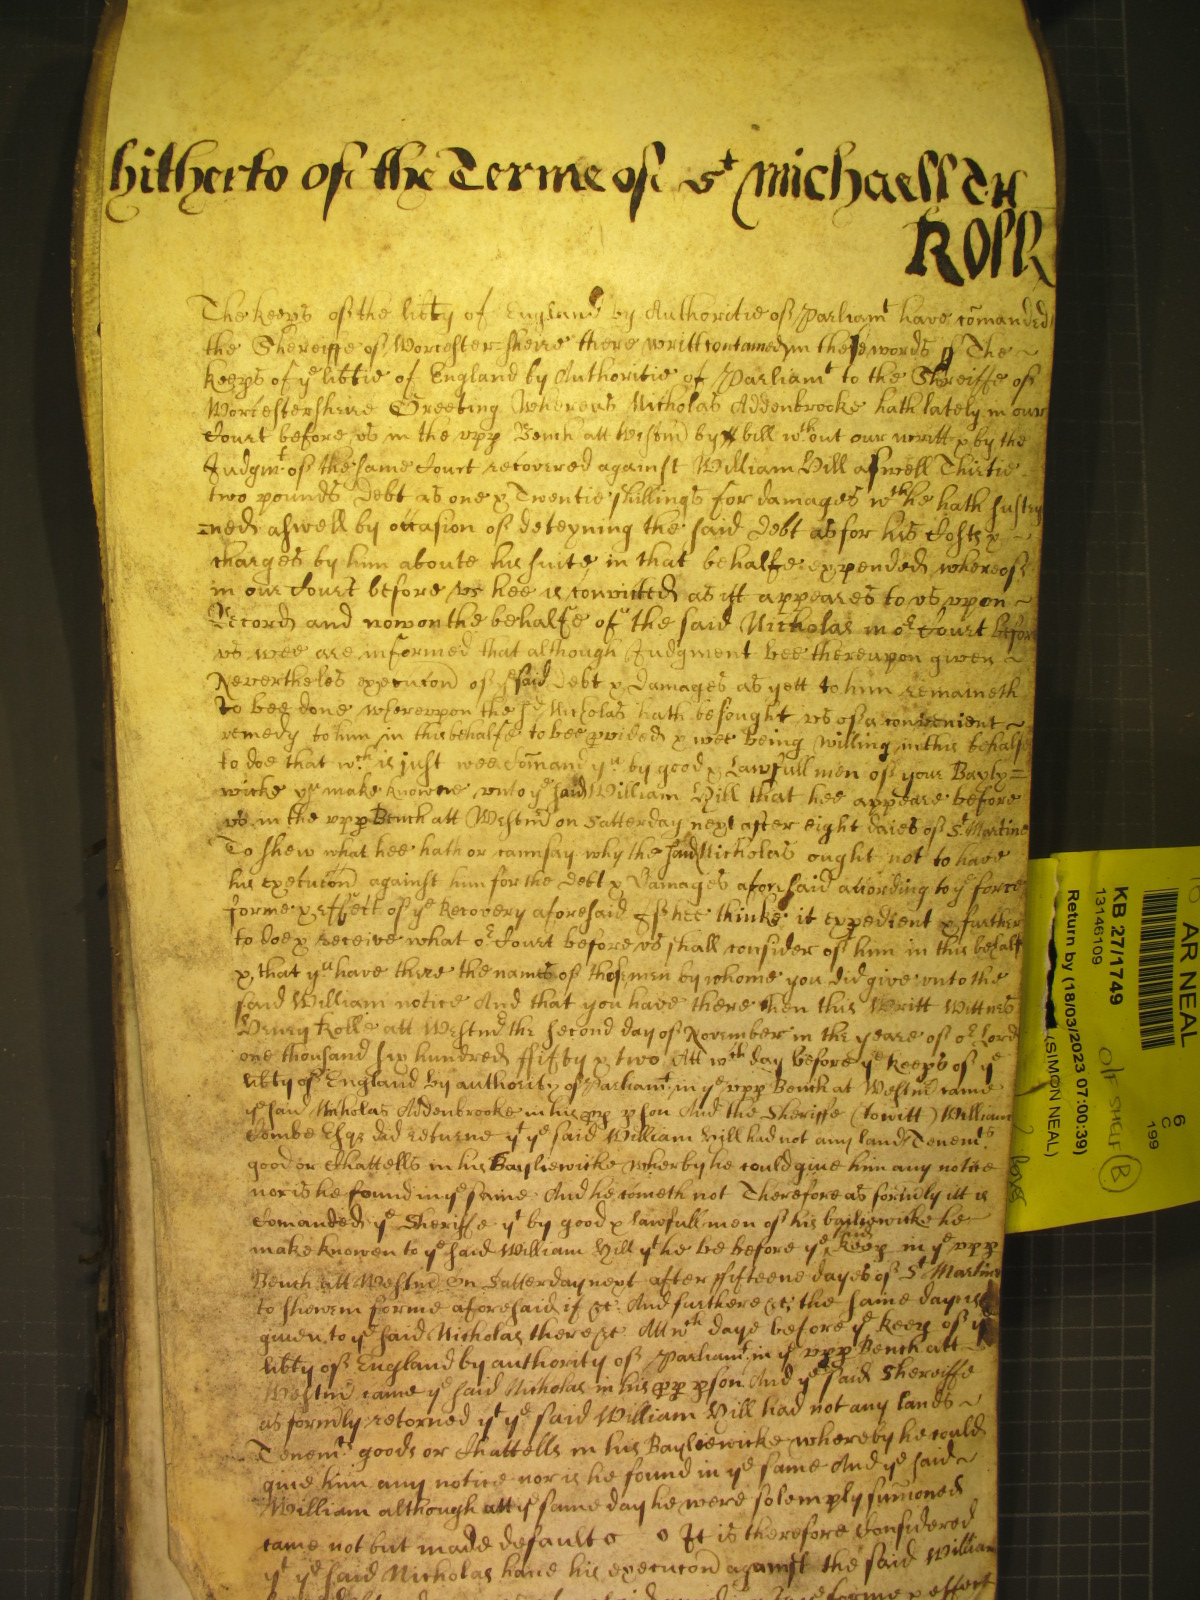 hitherto of the Terme of St Michaell The
Roll
The keeps of the libty of England by Authoritie of Parliamt have comanded
the Shereiffe of Worcester=sheire there writt contained in these words ss The ~
keeps of ye libtie of England by Authoritie of Parliamt to the Shreiffe of
Worcestersheire Greeting Whereas Nicholas Addenbrooke hath lately in our
Court before vs in the vpp Bench att Westmr by bill wthout our writt & by the
Judgmt of the same Court recovered against William Hill aswell Thirtie
two pounds Debt as one & Twentie shillings for damages wch he hath sustey
=ned aswell by occasion of deteyning the said Debt as for his Costs & ~
charges by him aboute his suite in that behalfe expended whereof
in our Court before vs hee is convicted as itt appeares to vs vpon ~
Record and now on the behalfe of the said Nicholas in or Court before
vs wee are informed that although Judgment bee thereupon given ~
Nevertheles execucon of ye said Debt & Damages as yett to him remaineth
to bee done wherevpon the sd Nicholas hath besought vs of a convenient ~
remedy to him in this behalfe to bee pvided & wee being willing in this behalfe
to doe that wch is just wee Comand yu by good & Lawfull men of your Bayly=
wicke yt make knowne vnto ye said William Hill that hee appeare before
vs in the vpp Bench att Westmr on Satterday next after eight daies of St Martine
To shew what hee hath or cann say why the said Nicholas ought not to have
his execucon against him for the Debt & Damages aforesaid according to ye force
forme & effect of ye Recovery aforesaid If hee thinke it expedient & further
to doe & receive what or Court before vs shall consider of him in this behalf
& that yu have there the names of those men by whome you did give vnto the
said William notice And that you have there then this Writt Wittnes
Henry Rolle att Westmr the second day of November in the yeare of or Lord
one thousand six hundred ffifty & two Att wch day before ye keeps of ye
libty of England by authority of Parliamt in ye vpp Bench at Westmr came
ye said Nicholas Addenbrooke in his pp pson And the Sheriffe (to witt) William
Combe Esqr did returne yt ye said William Hill had not any lands Tenemts
good or Chattells in his Bayliewicke wherby he could give him any notice
nor is he found in ye same And he cometh not Therefore as formly itt is
Comanded ye Sheriffe yt by good & lawfull men of his bailiewicke he
make knowen to ye said William Hill yt he be before ye said keep in ye vpp
Bench att Westmr on Satterday next after ffifteene dayes of St Martine
to shew in forme aforesaid if &c And further &c the same day is
given to ye said Nicholas there &c Att wch daye before ye keep of ye
libty of England by authority of Parliamt in ye vpp Bench att
Westmr came ye said Nicholas in his pp pson And ye said Shereiffe
as formly retorned yt ye said William Hill had not any lands ~
Tenemts goods or Chattells in his Bayliewicke whereby he could
give him any notice nor is he found in ye same And ye said ~
William although att ye same day he were solemply sumoned
came not but made default It is therefore Considered
yt ye said Nicholas have his execucon against the said William
forme & effect
AR NEAL
KB 27/1749
13146109
Return by (18/03/2023 07:00:39)
(SIMON NEAL)
6
C
199
O/S SHELF
B